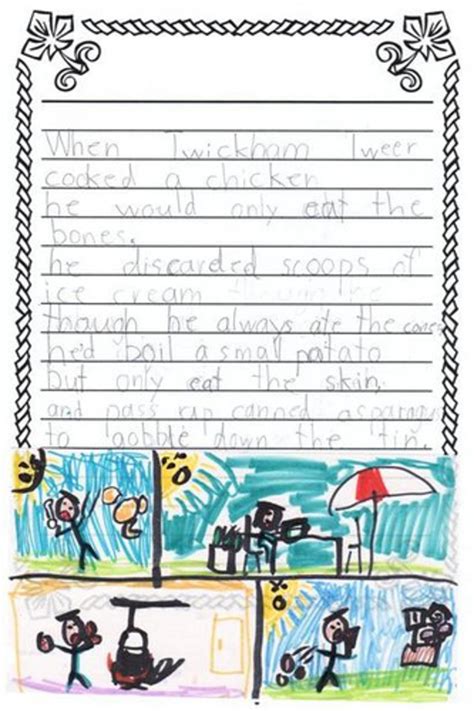 When Twickham Tweer
cooked a chicken
he would only eat the
bones.
he discarded scoops of
ice cream
though he always ate the cones
he'd boil a small patato
but only eat the skin,
and pass rap canned asparagus
to gobble down the tin.